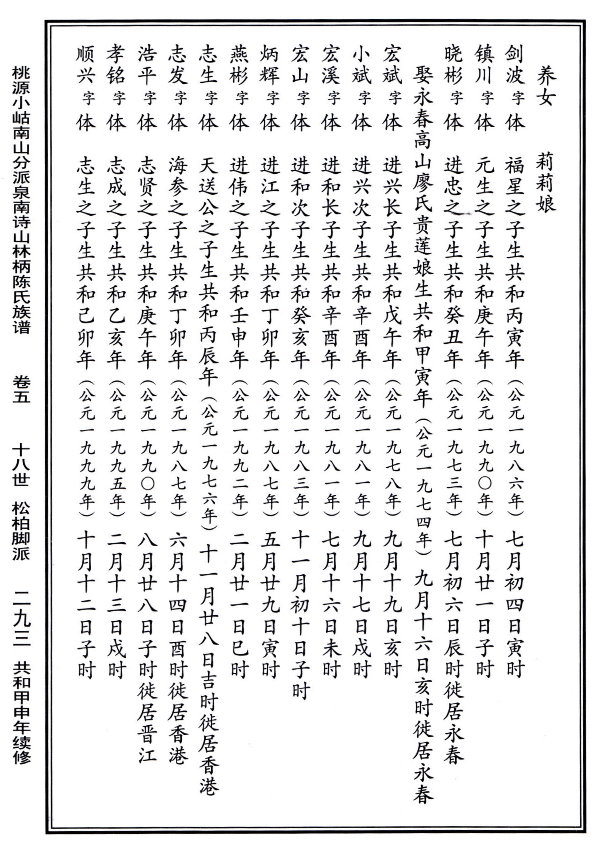 养女 莉莉娘
剑波 字 体 福星之子生共和丙寅年（公元一九八六年）七月初四日寅时
镇川 字 体 元生之子生共和庚午年（公元一九九〇年）十月廿一日子时
晓彬 字 体 进忠之子生共和癸丑年（公元一九七三年）七月初六日辰时徙居永春
娶永春高山廖氏贵莲娘生共和甲寅年（公元一九七四年）九月十六日亥时徙居永春
宏斌 字 体 进兴长子生共和戊午年（公元一九七八年）九月十九日亥时
小斌 字 体 进兴次子生共和辛酉年（公元一九八一年）九月十七日戌时
宏溪 字 体 进和长子生共和辛酉年（公元一九八一年）七月十六日未时
宏山 字 体 进和次子生共和癸亥年（公元一九八三年）十一月初十日子时
炳辉 字 体 进江之子生共和丁卯年（公元一九八七年）五月廿九日寅时
燕彬 字 体 进伟之子生共和壬申年（公元一九九二年）二月廿一日巳时
志生 字 体 天送公之子生共和丙辰年（公元一九七六年）十一月廿八日吉时徙居香港
志发 字 体 海参之子生共和丁卯年（公元一九八七年）六月十四日酉时徙居香港
浩平 字 体 志贤之子生共和庚午年（公元一九九〇年）八月廿八日子时徙居晋江
孝铭 字 体 志成之子生共和乙亥年（公元一九九五年）二月十三日戌时
顺兴 字 体 志生之子生共和己卯年（公元一九九九年）十月十二日子时
桃源小岵南山分派泉南诗山林柄陈氏族谱 卷五 十八世 松柏脚派 二九三 共和甲申年续修